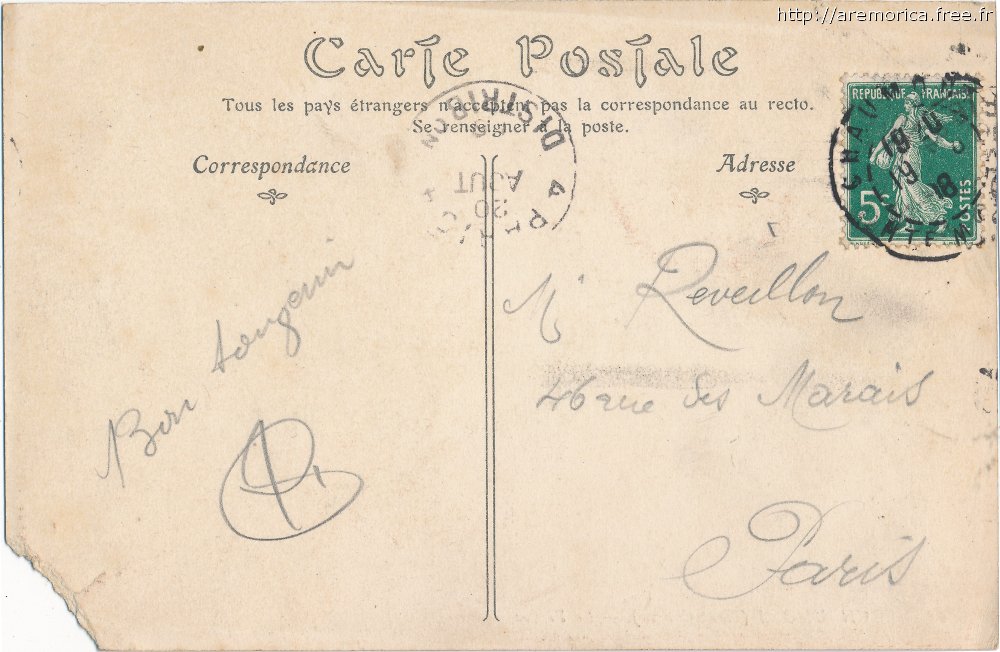 http://aremorica.free.fr
Carte Postale
Tous les pays étrangers n'acceptent pas la correspondance au recto.
Se renseigner à la poste.
Correspondance
Adresse
RÉPUBLIQUE FRANÇAISE
5c
POSTES
DISTRIBON
20
AOUT
Bon
Mr Reveillon
46 rue des Marais
Paris